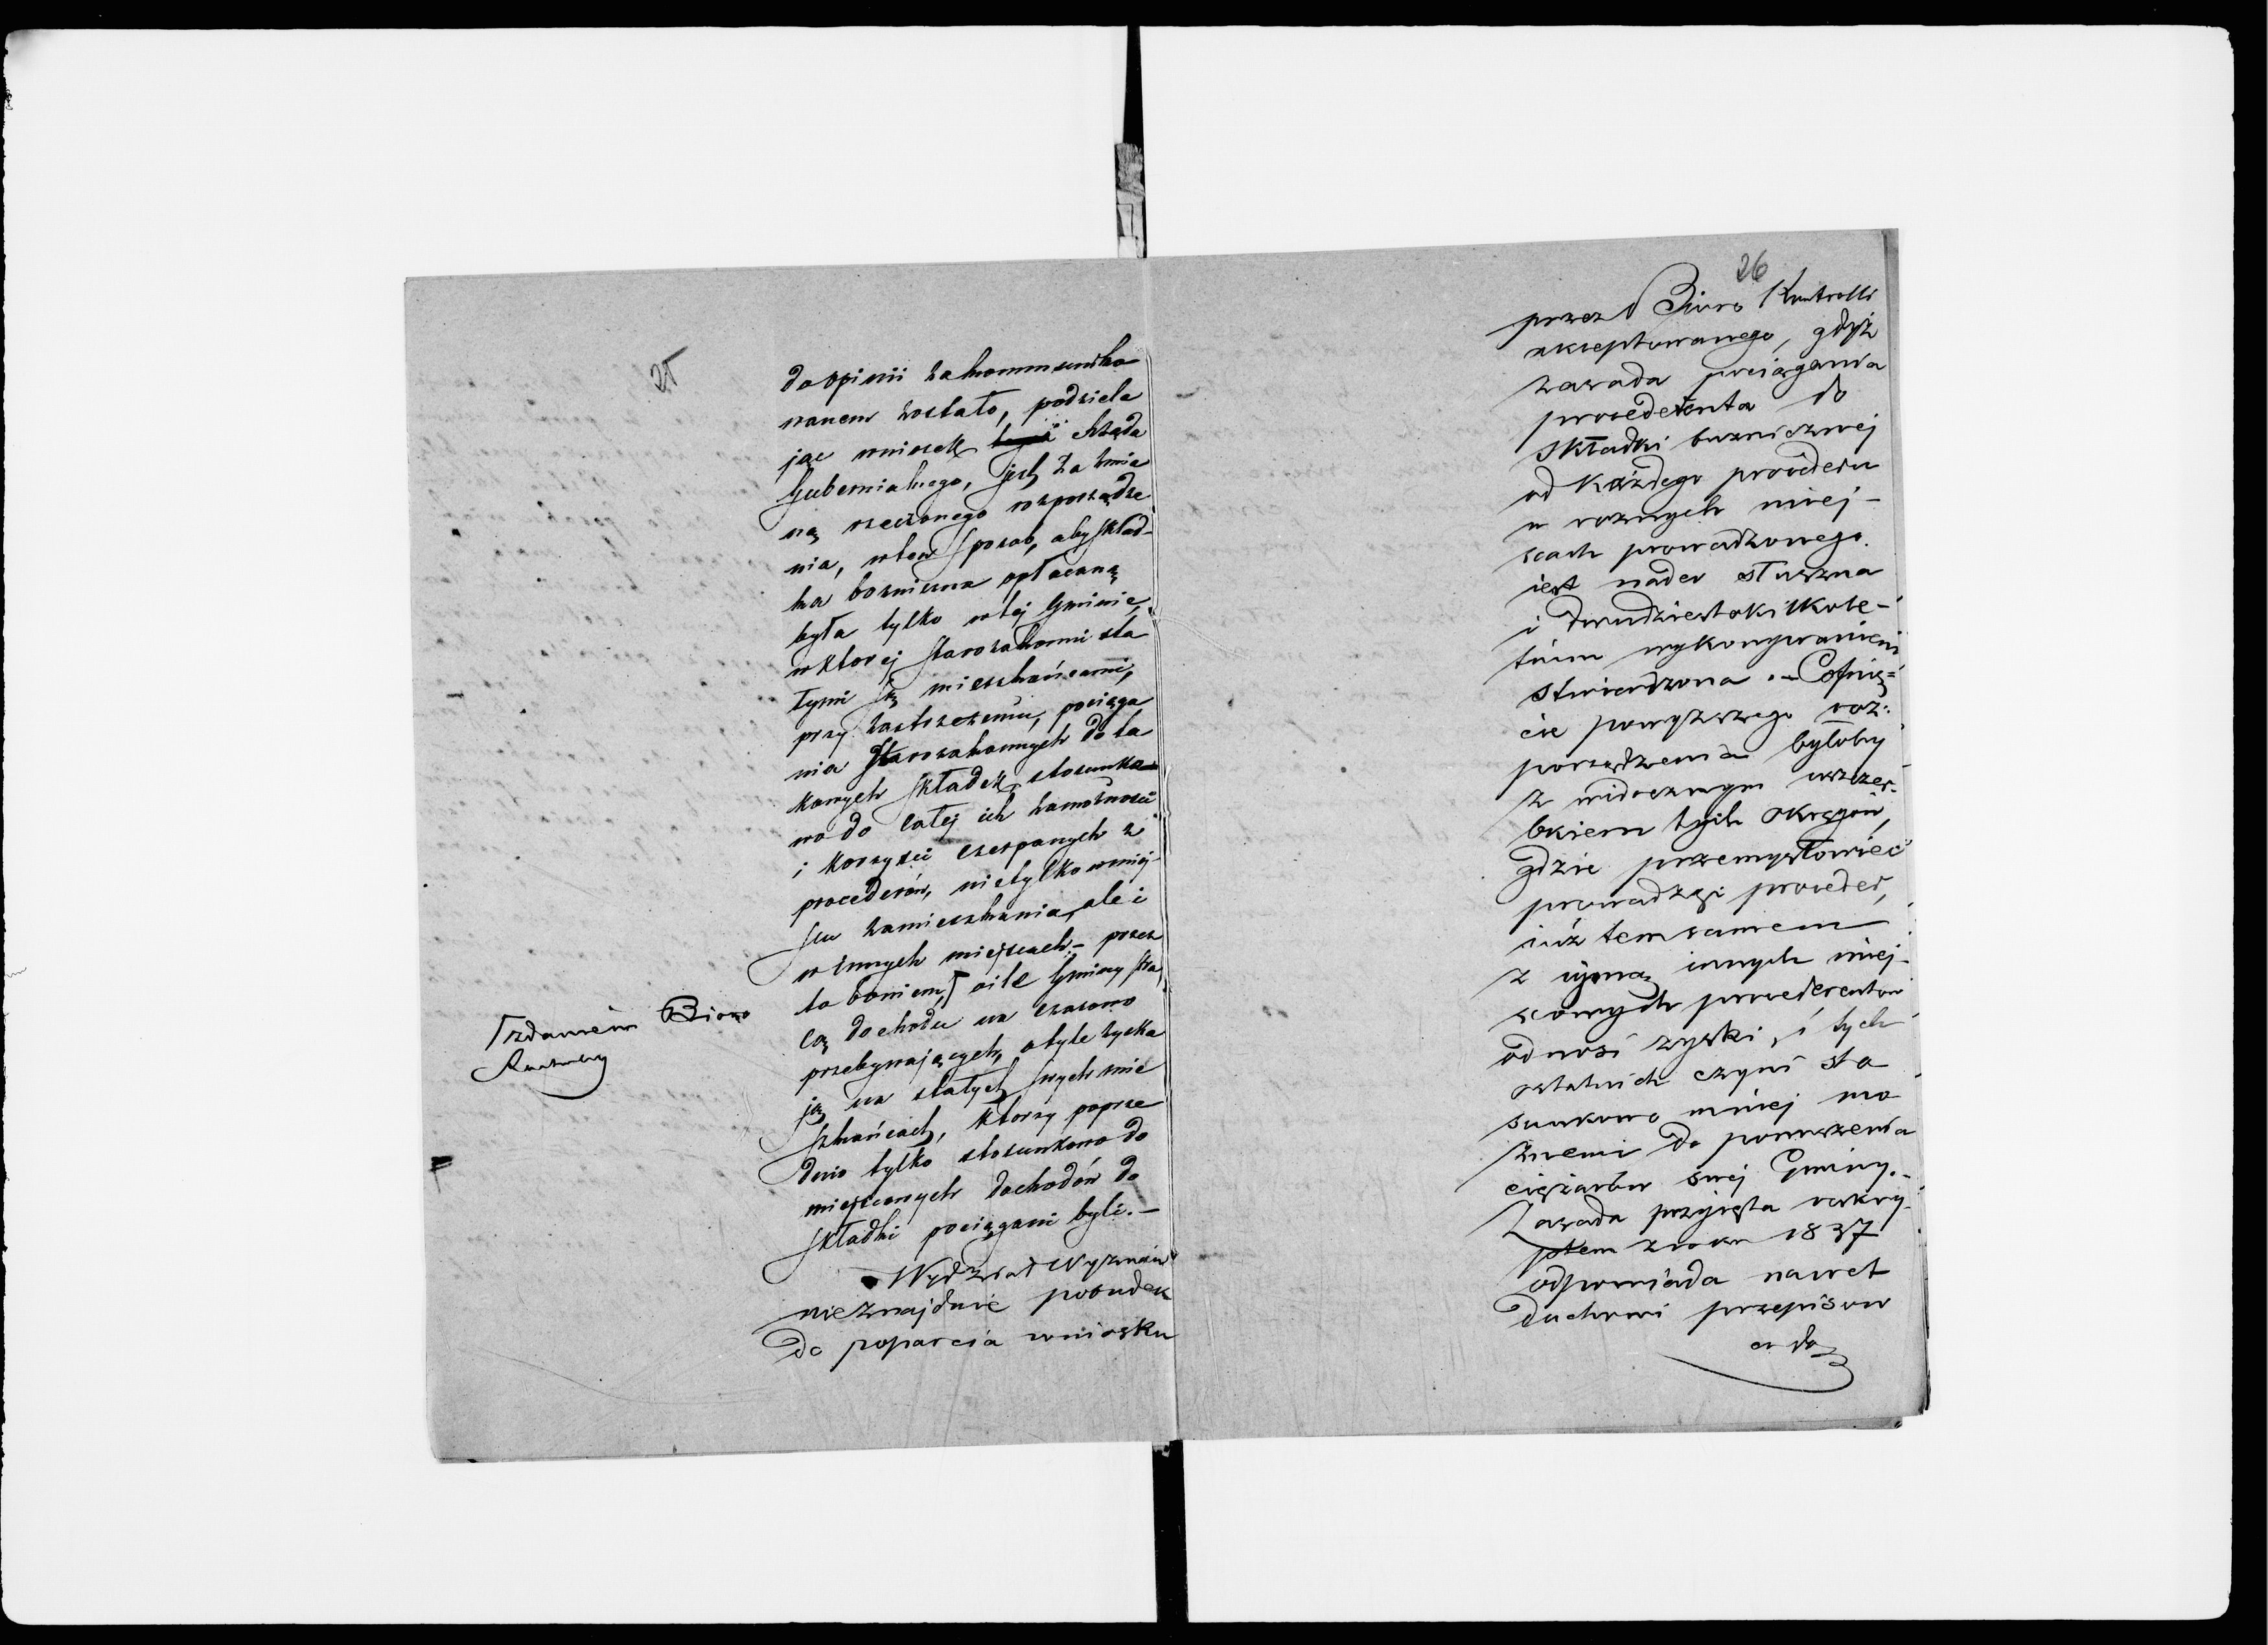 25
do opinii zakommuniko
wanem zostało, podziela
jąc wniosek Rządu
Gubernialnego, jest za zmia
ną rzeczonego rozporządze
nia, w ten sposób, aby skład-
ka bożnicza opłacaną
była tylko w tej Gminie,
w ktorej Starozakonni sta
łymi są mieszkańcami,
przy zastrzeżeniu, pociąga
nia Starozakonnych do ta
kowych składek, stosunko
wo do całej ich zamożności
i korzyści czerpanych z
procederów, nietylko w miej-
scu zamieszkania, ale i
w innych miejscach – przez
to bowiem, ⌈ o ile Gminy stra
cą dochodu na czasowo
przebywających, o tyle zyska
ją na stałych swych mie
szkańcach, ktorzy poprze
dnio tylko stosunkowo do
miejscowych dochodów do
składki pociągani byli. –
Wydział Wyznań
nieznajduie pobudek
do poparcia wniosku
⌈ zdaniem Biura
Kontroly
26
przez Biuro Kontrolli
akceptowanego, gdyż
zasada pociągania
procederenta do
składki bużnicznej
od każdego procederu
w roznych miej-
scach prowadzonego
iest nader słuszna
i dwudziestokilkole-
tniem wykonywaniem
stwierdzona. – Cofnię-
cie powyższego roz-
porządzenia byłoby
z widocznym uszczer-
bkiem tych okręgów,
gdzie przemysłowiec
prowadząc proceder,
iuż tem samem
z ujmą innych miej-
scowych procederentow
odnosi zyski, i tych
ostatnich czyni sto
sunkowo mniej mo
żnemi do ponoszenia
ciężarów swej Gminy. –
Zasada przyięta reskry-
ptem z roku 1837
odpowiada nawet
duchowi przepisow
co do